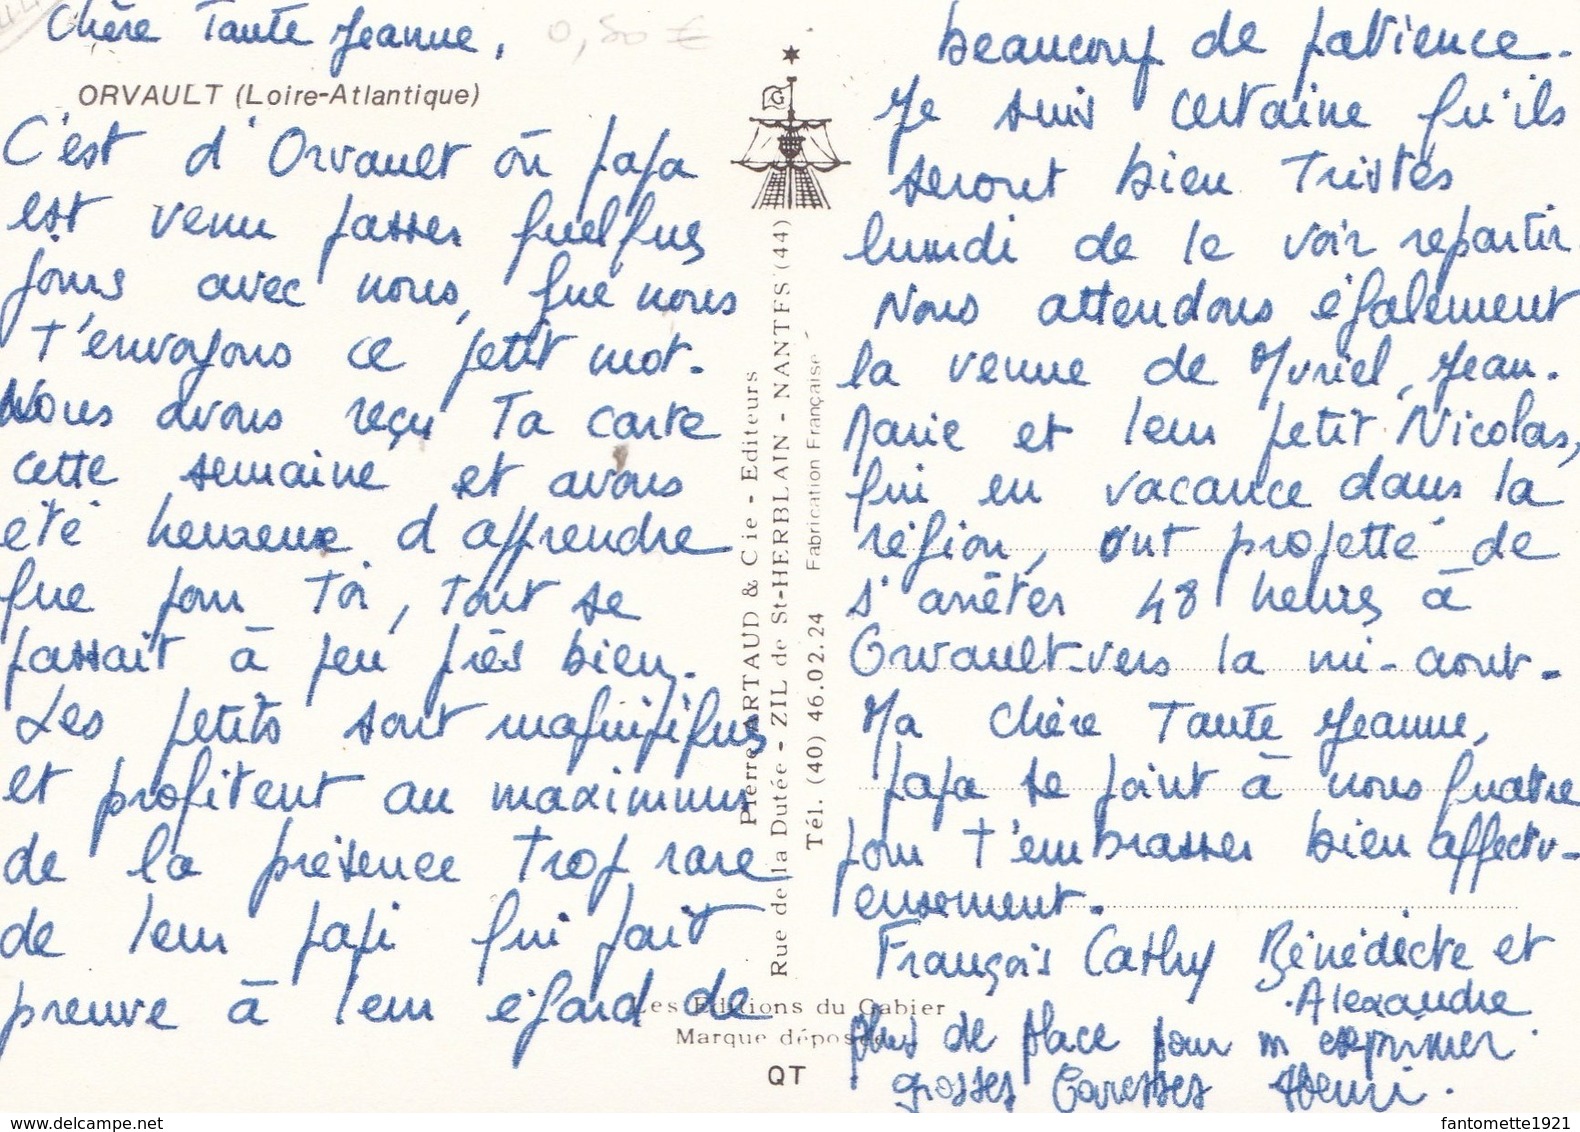 Chère Tante Jeanne,
0,50 €
ORVAULT (Loire-Atlantique)
C'est d'Orvault où papa
est venu passer quelques
jours avec nous, que nous
t'envoyons ce petit mot.
Nous avons reçu Ta carte
cette semaine et avons
été heureux d'apprendre
que pour Toi, Tout se
passait à peu près bien.
Les petits sont magnifiques
et profitent au maximum
de la présence Trop rare
de leur papi qui fait
preuve à leur égard de
beaucoup de patience.
Je suis certaine qu'ils
seront bien Tristes
lundi de le voir repartir.
Nous attendons également
la venue de Muriel, Jean-
Marie et leur petit Nicolas,
qui en vacance dans la
région, ont projetté de
s'arrêter 48 heures à
Orvault vers la mi-aout.
Ma chère Tante Jeanne,
papa se joint à nous quatre
pour t'embrasser bien affectu-
eusement.
François Cathy Bénédicte et
Alexandre
plus de place pour m exprimer.
grosses Caresses Henri.
Pierre ARTAUD & Cie - Editeurs
Rue de la Dutée - ZIL de St-HERBLAIN - NANTES (44)
Tél. (40) 46.02.24 Fabrication Française
Les Editions du Gabier
Marque déposée
QT
www.delcampe.net
fantomette1921